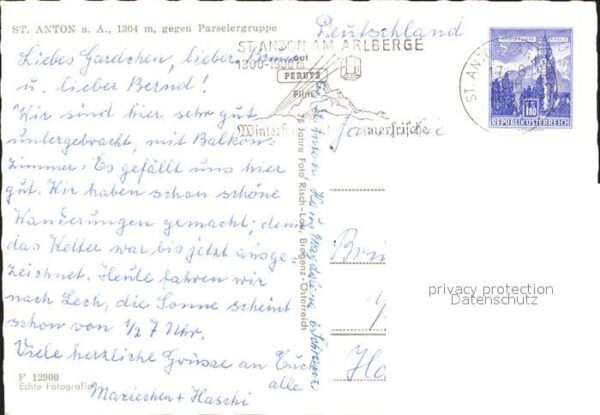 ST. ANTON a. A., 1304 m, gegen Parseiergruppe
Deutschland
Liebes Gardchen, lieber
u. lieber Bernd!
Wir sind hier sehr gut
untergebracht, mit Balkon-
zimmer. Es gefällt uns hier
gut. Wir haben schon schöne
Wanderungen gemacht, denn
das Wetter war bis jetzt ausge-
zeichnet. Heute fahren wir
nach Lech, die Sonne scheint
schon von 1/2 7 Uhr.
Viele herzliche Grüsse an Euch
alle
Mariechen + Haschi
F 12900
Echte Fotografie
ST. ANTON AM ARLBERG
1300-
PERUTZ
Film
Winter
merfrische
ST. ANTON
REPUBLIK ÖSTERREICH
1.80
Familie
75 Jahre Foto Risch-Lau, Bregenz-Österreich
St. Anton, Haus Magdalena
privacy protection
Datenschutz